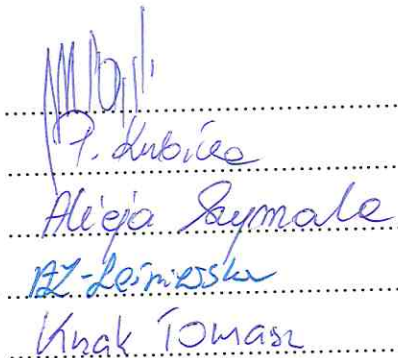 P. Kubica
Alicja Szymala
AZ-Leśniewska
Knak Tomasz